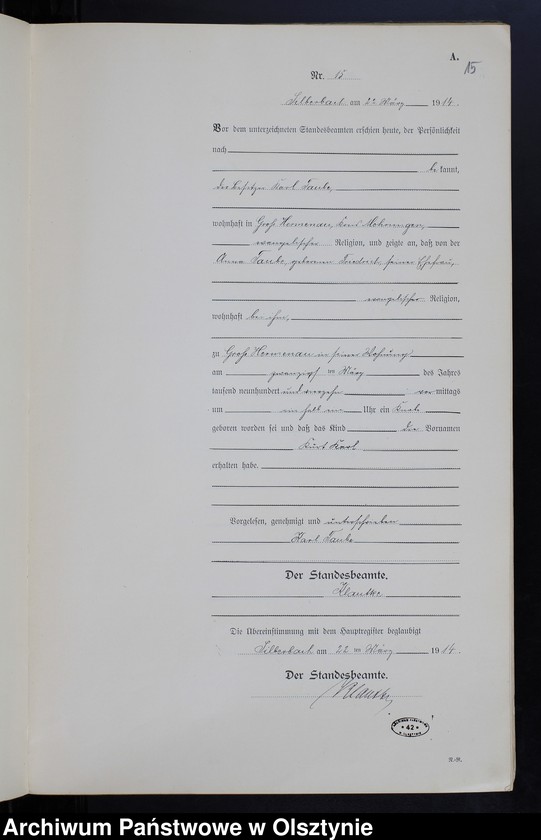 A.
15
Nr. 15
Silberbach am 22 März 1914.
Vor dem unterzeichneten Standesbeamten erschien heute, der Persönlichkeit
nach
be kannt,
der Besitzer Karl
wohnhaft in Groß Hermenau, Kreis Mohrungen,
evangelischer Religion, und zeigte an, daß von der
Anna geborenen Friedrich, seiner Ehefrau,
evangelischer Religion,
wohnhaft bei ihm,
zu Groß Hermenau in seiner Wohnung
am zwanzigsten März des Jahres
tausend neunhundert und vierzehn vor mittags
um Uhr ein Knabe
geboren worden sei und daß das Kind die Vornamen
Kurt Karl
erhalten habe.
Vorgelesen, genehmigt und unterschrieben
Karl
Der Standesbeamte.
Klautke
Die Übereinstimmung mit dem Hauptregister beglaubigt
Silberbach am 22 ten März 1914.
Der Standesbeamte.
Klautke
* 42 *
N.-R.
Archiwum Państwowe w Olsztynie